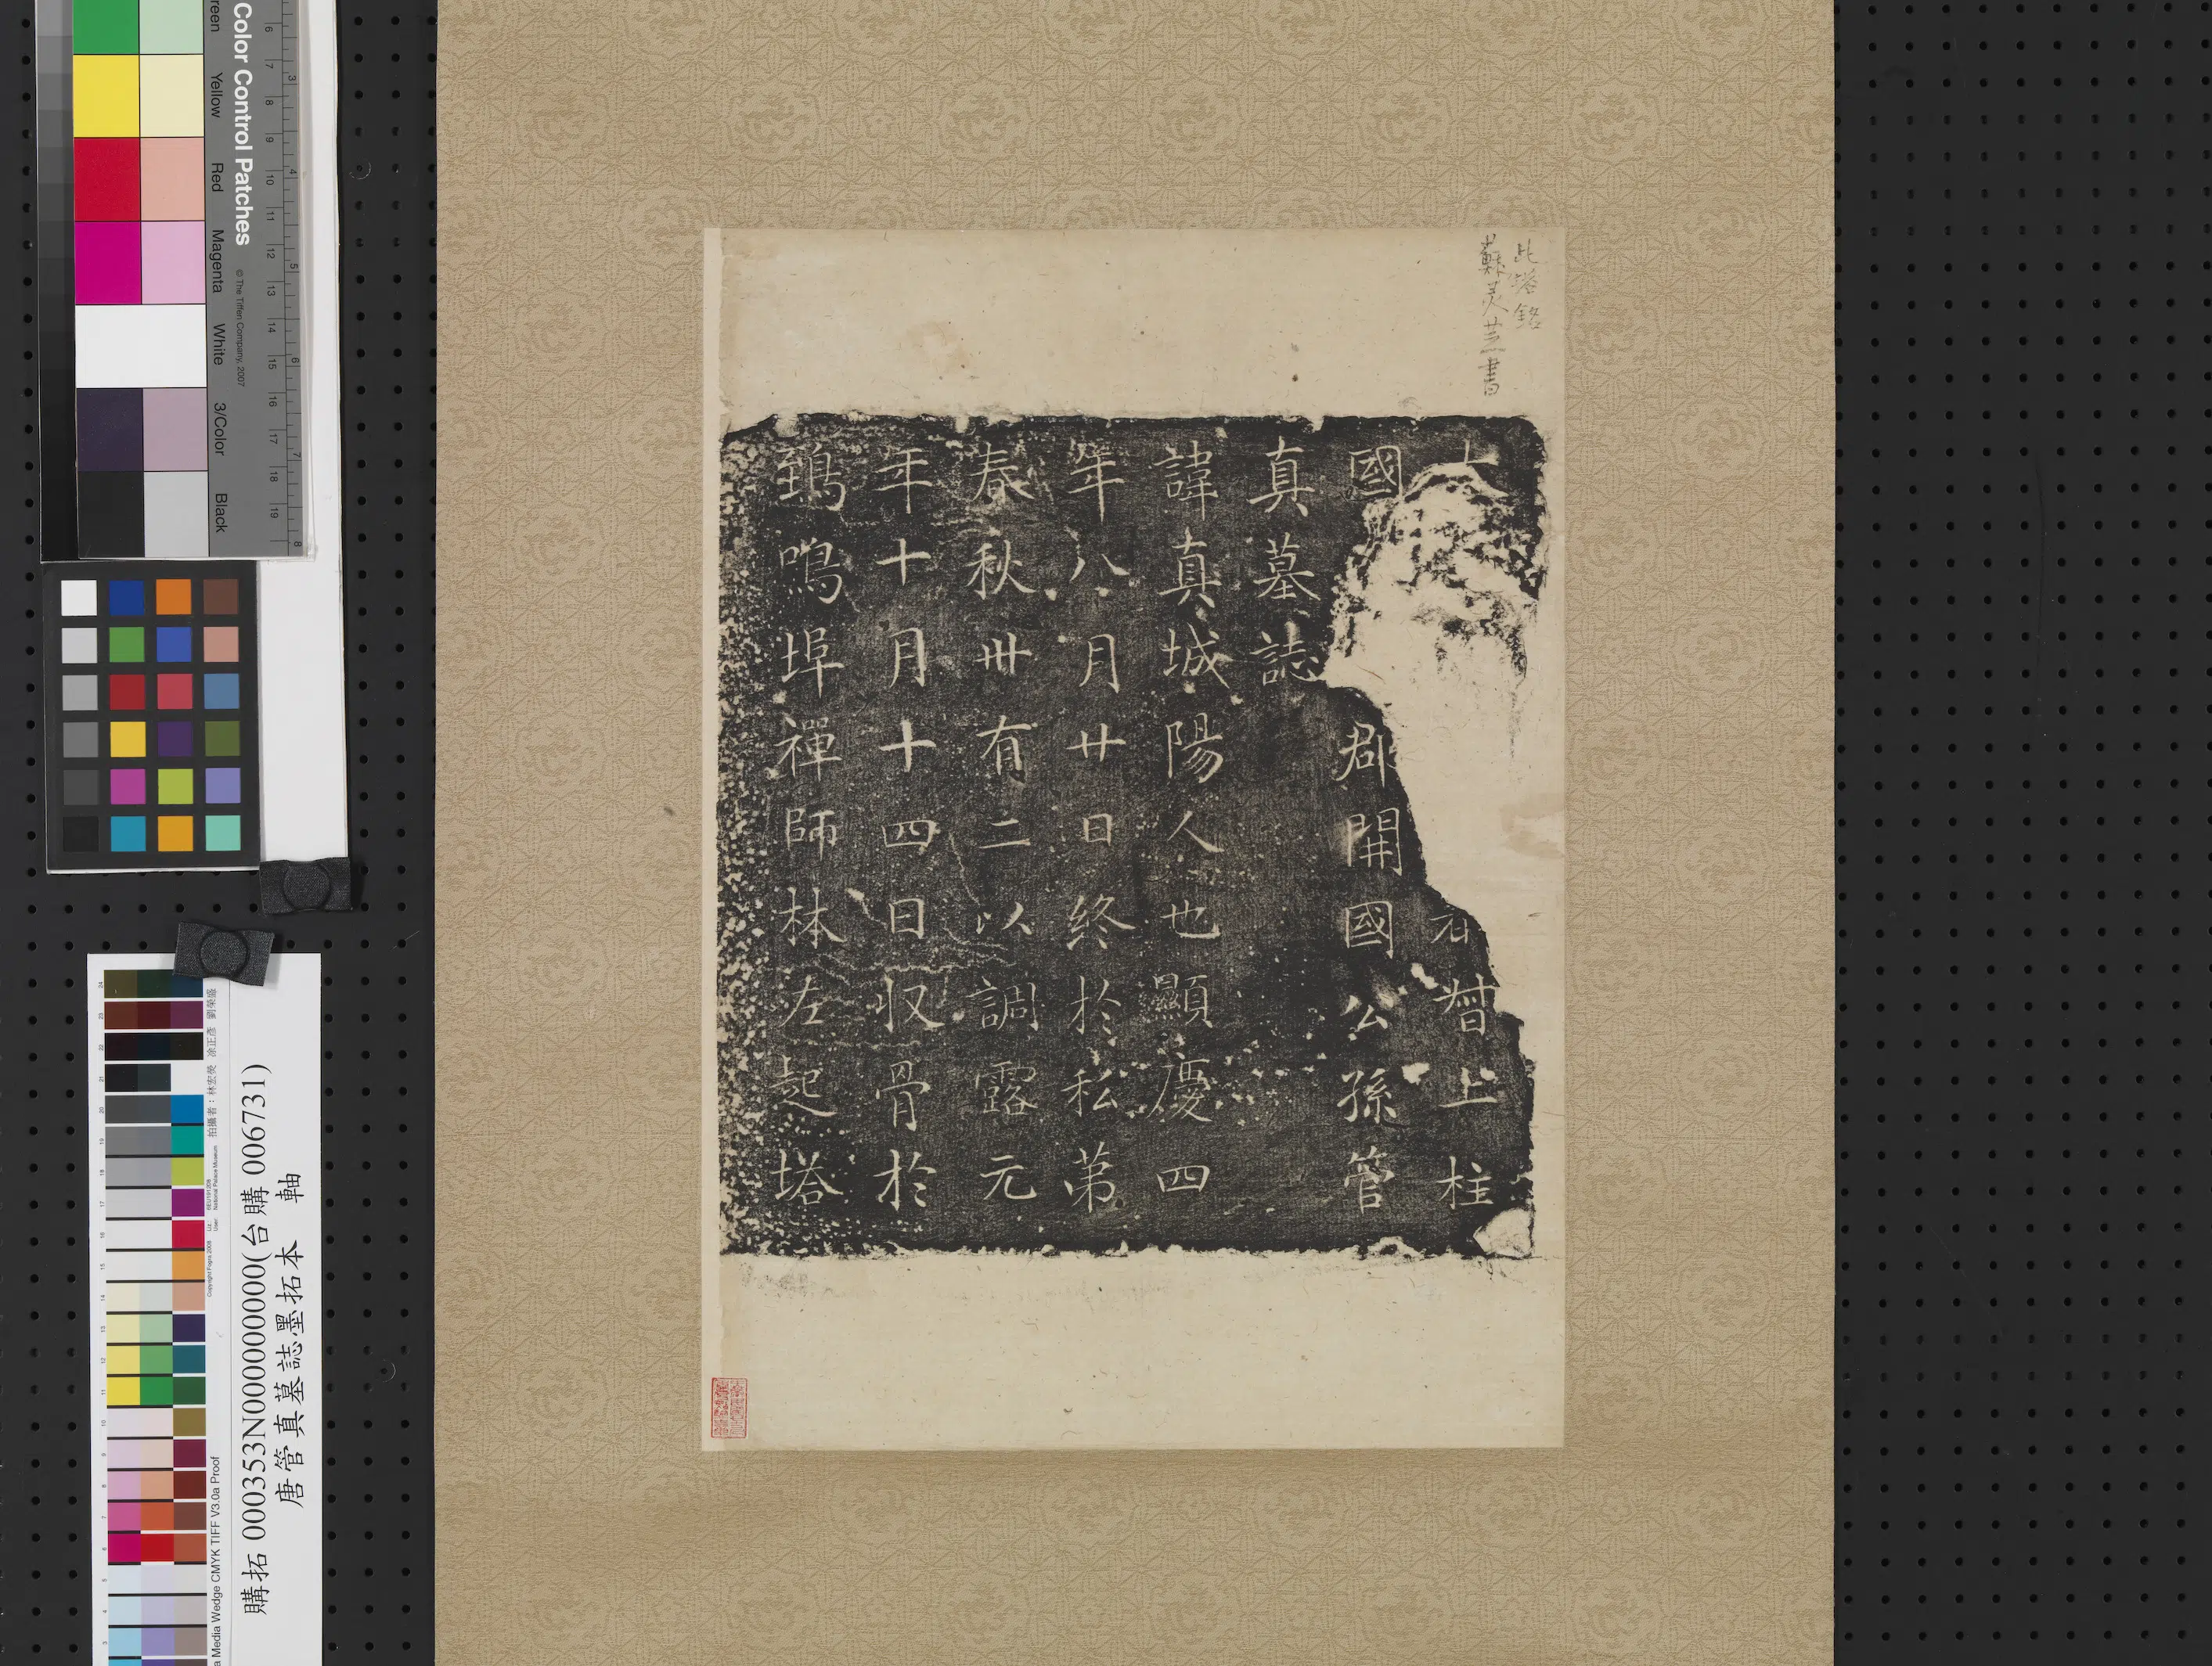 此塔銘
蘇灵芝書
大
右贊上柱
國
郡開國公孫管
真墓誌
諱真城陽人也顯慶四
年八月廿日終於私第
春秋卌有二以調露元
年十月十四日収骨於
鵄鳴埠禪師林左起塔
Color Control Patches
© The Tiffen Company, 2007
Yellow
Red
Magenta
White
3/Color
Black
購拓 000353N000000000(台購 006731)
唐管真墓誌墨拓本 軸
Media Wedge CMYK TIFF V3.0a Proof